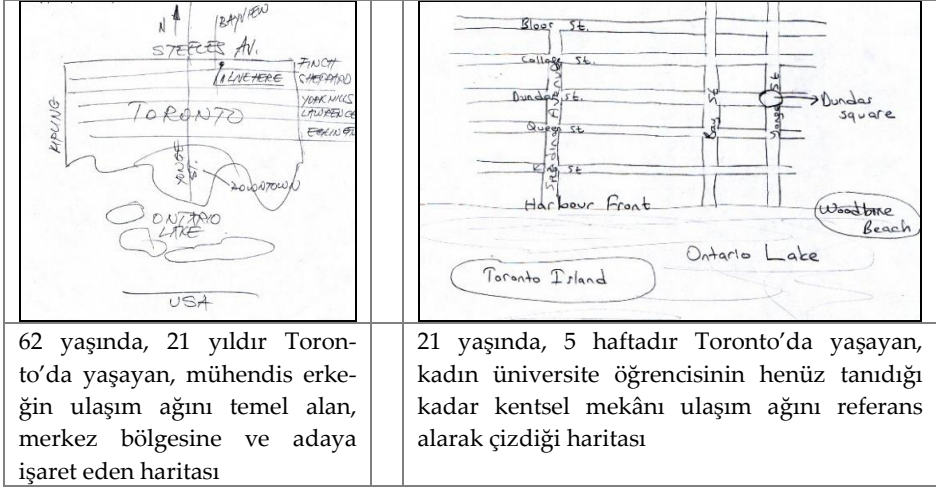 N
BAYVIEW
STEELES AV.
FINCH
SHEPPARD
YORK MILLS
LAWRENCE
KIPLING
TORONTO
YONGE ST.
DOWNTOWN
ONTARIO
LAKE
USA
Bloor St.
College St.
Dundas St.
Queen St
King St
Spadina Avenue
Bay St
Yonge St
Dundas
square
Harbour Front
Woodbine
Beach
Ontario Lake
Toronto Island
62 yaşında, 21 yıldır Toron-
to’da yaşayan, mühendis erke-
ğin ulaşım ağını temel alan,
merkez bölgesine ve adaya
işaret eden haritası
21 yaşında, 5 haftadır Toronto’da yaşayan,
kadın üniversite öğrencisinin henüz tanıdığı
kadar kentsel mekânı ulaşım ağını referans
alarak çizdiği haritası